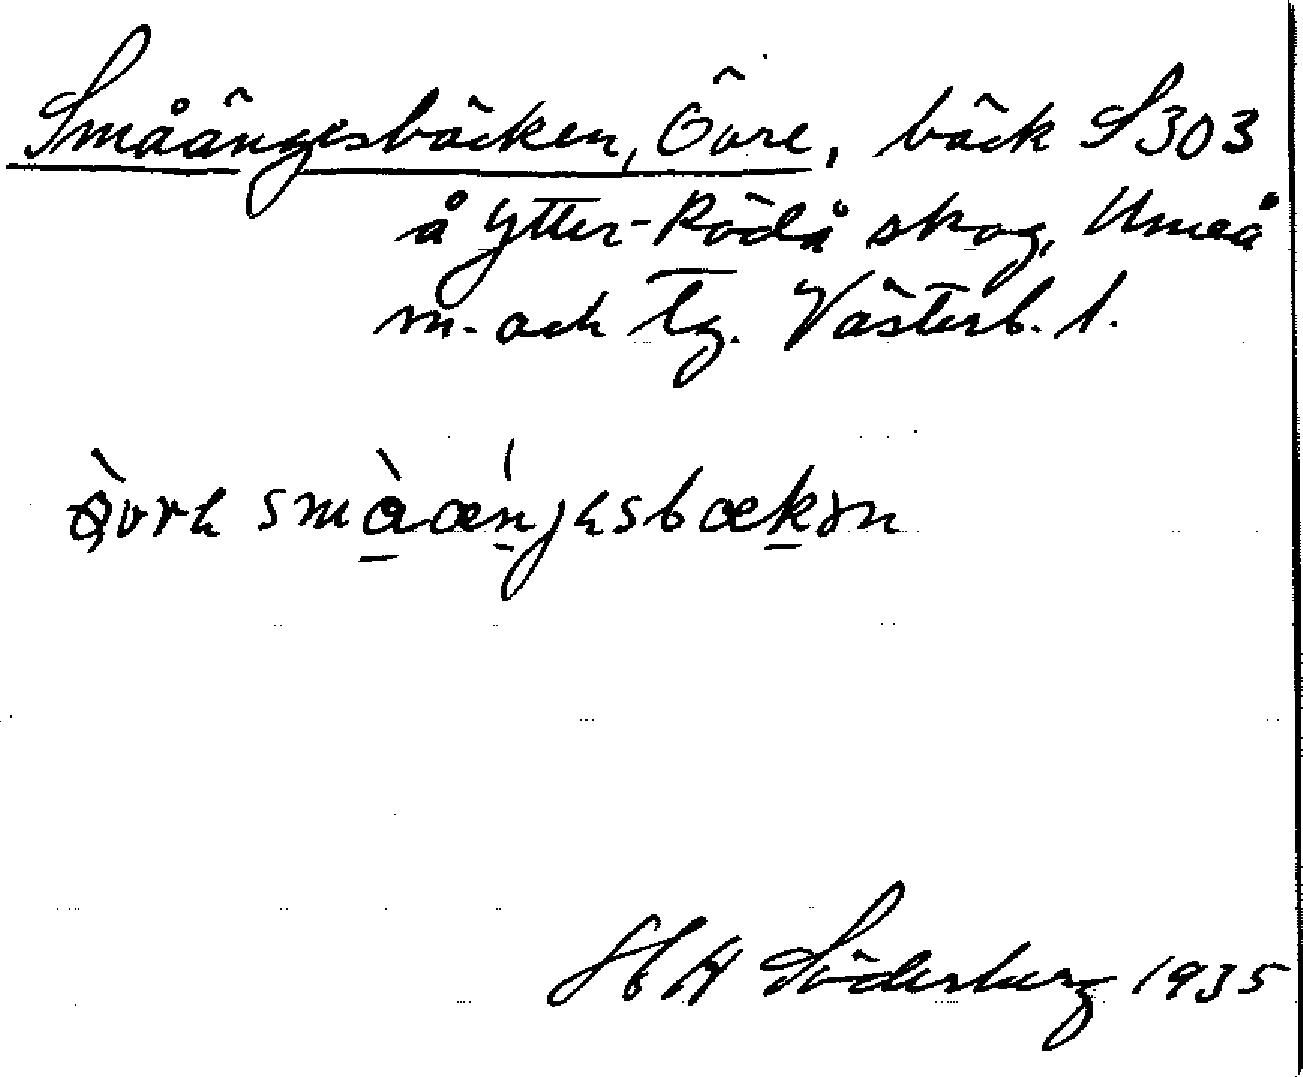 Småängesbäcken, Övre, bäck S303
å Ytter-Rödå skog, Umeå
m. och tg. Västerb. l.
smàæńjesbækən
H W Söderberg 1935